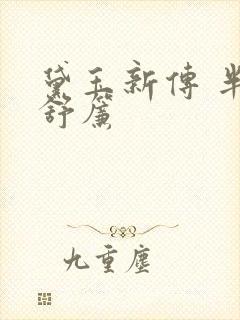 黛玉新傳 半
舒簾
九重塵